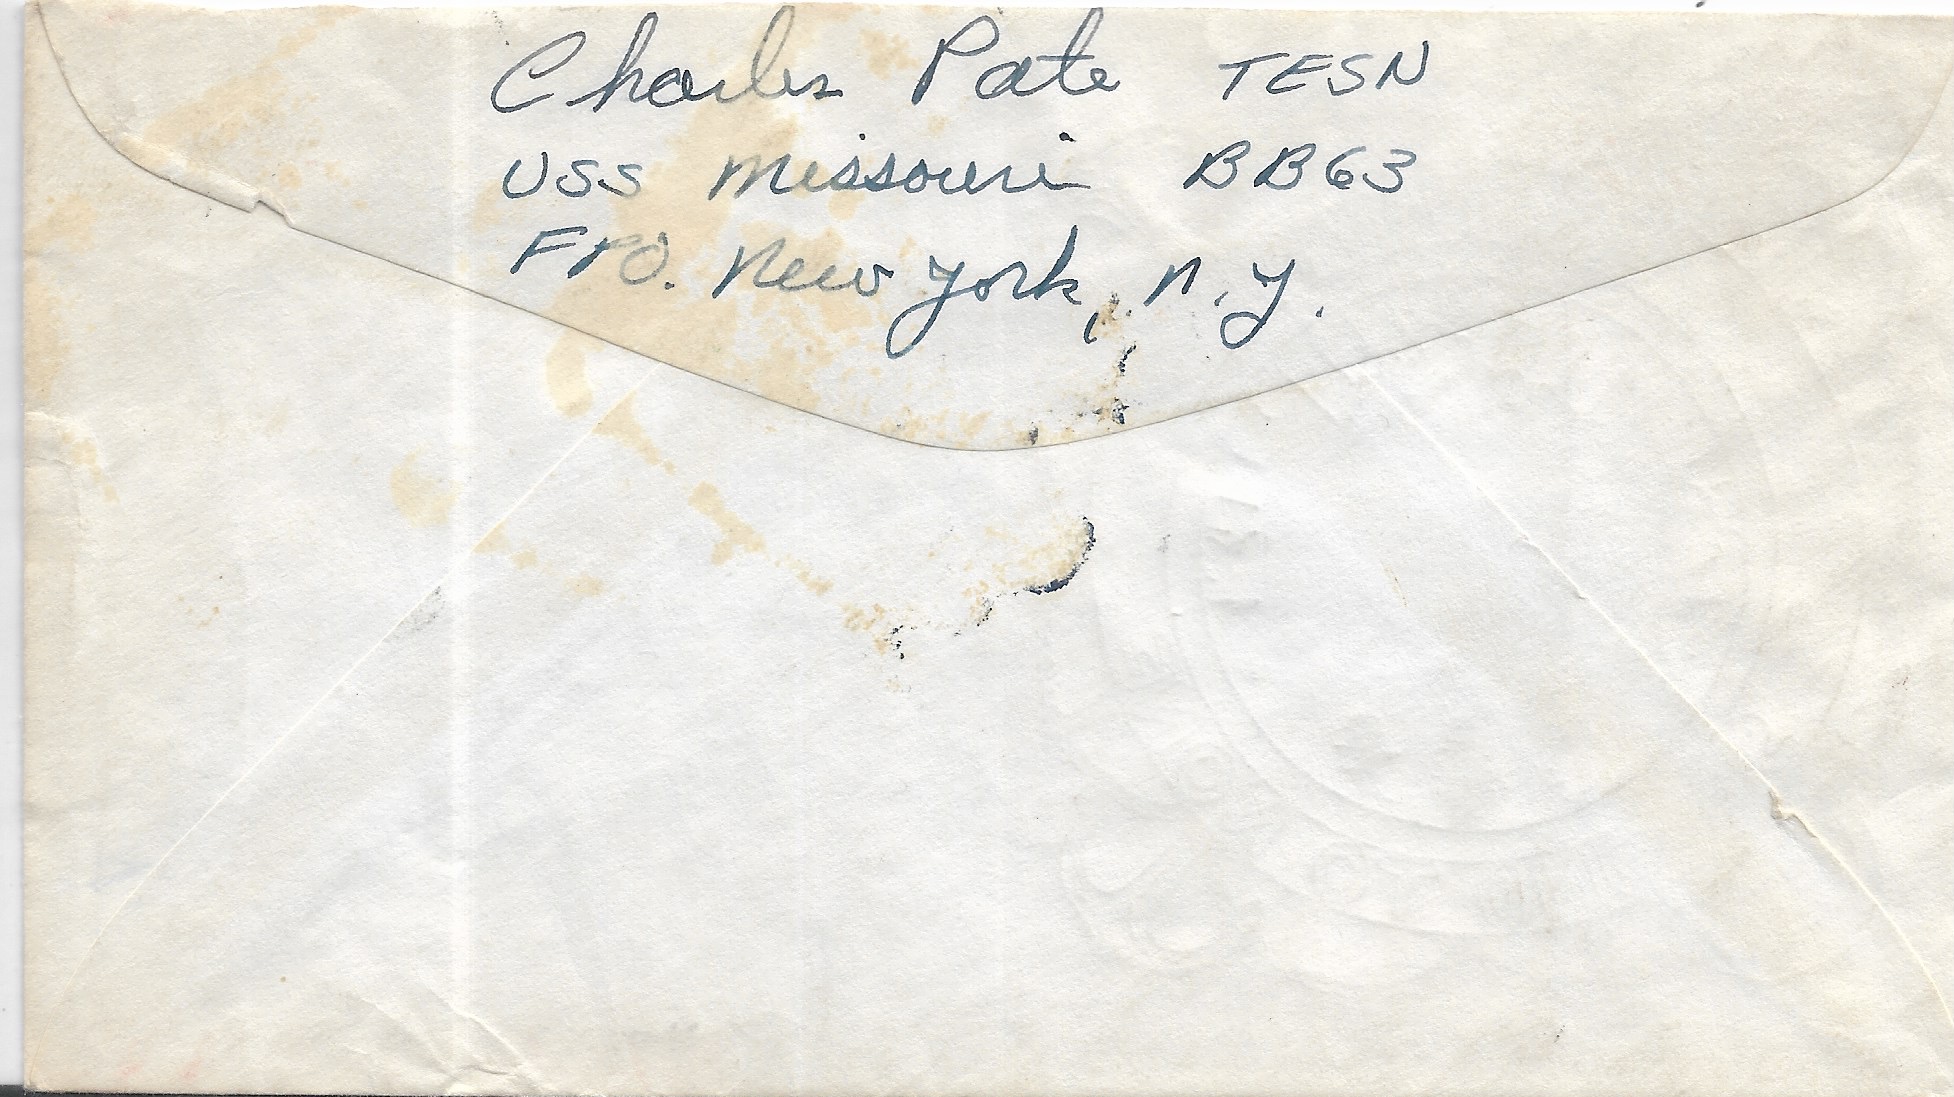 Charles Pate TESN
USS Missouri BB63
FPO. New York, N.Y.